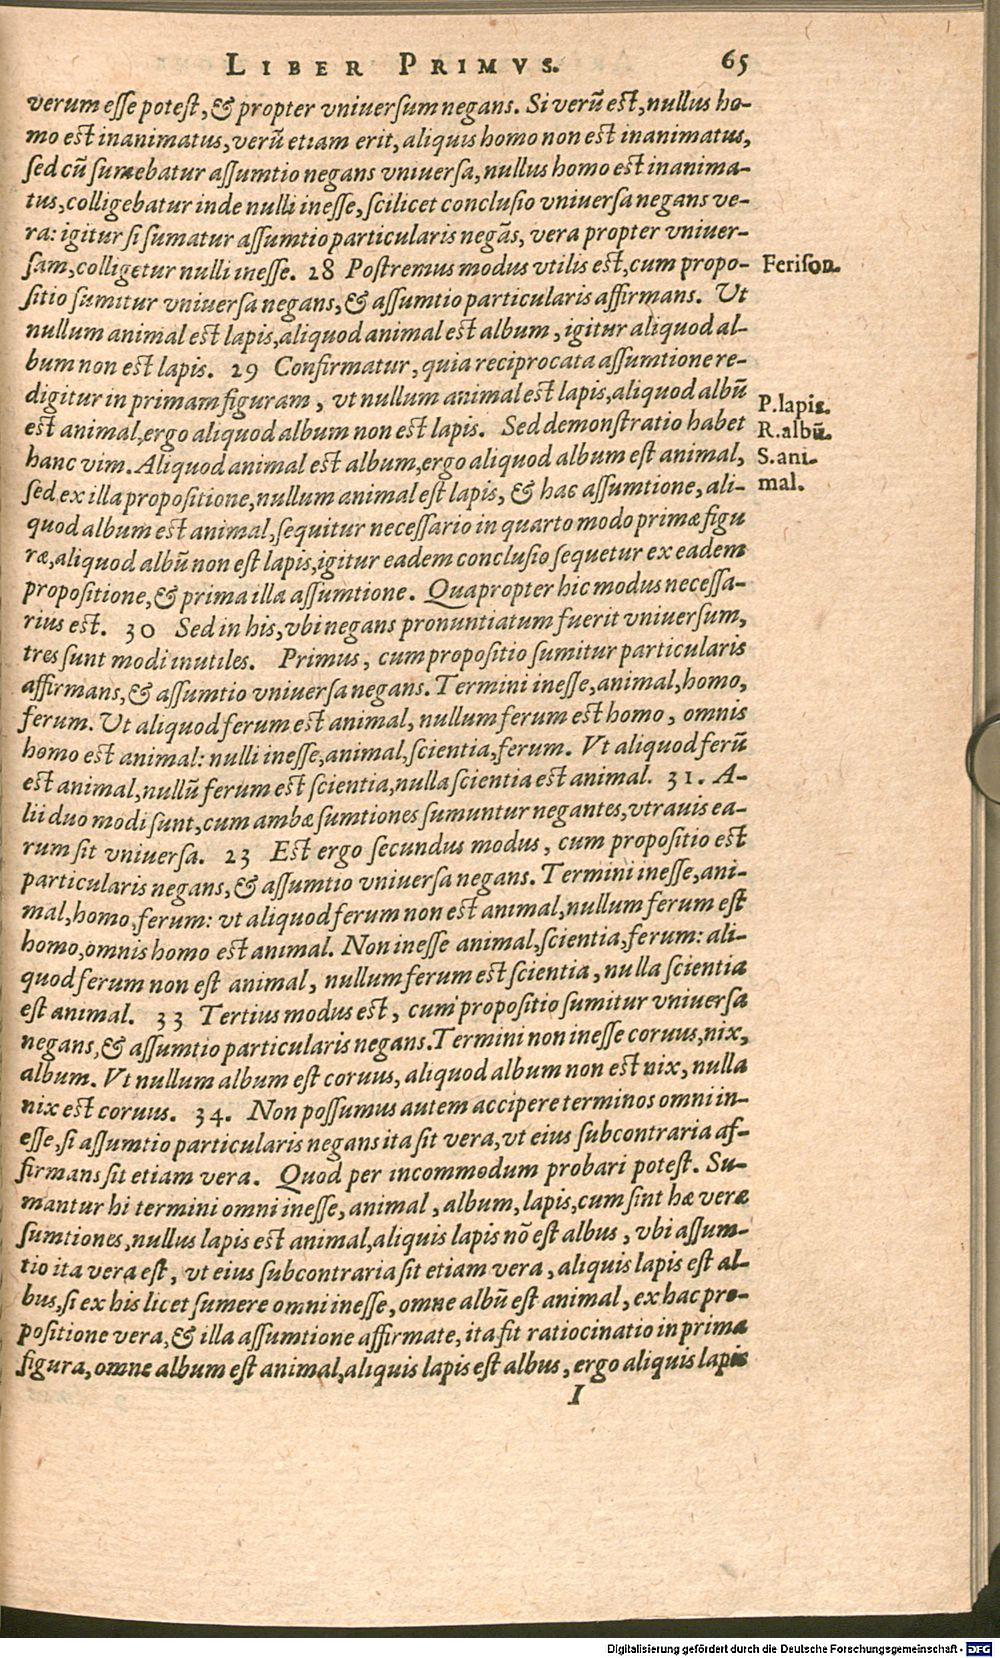 LIBER PRIMVS. 65
verum esse potest, & propter vniuersum negans. Si verū est, nullus ho-
mo est inanimatus, verū etiam erit, aliquis homo non est inanimatus,
sed cū sumebatur assumtio negans vniuersa, nullus homo est inanima-
tus, colligebatur inde nulli inesse, scilicet conclusio vniuersa negans ve-
ra: igitur si sumatur assumtio particularis negās, vera propter vniuer-
sam, colligetur nulli inesse. 28 Postremus modus vtilis est, cum propo-
Ferison.
sitio sumitur vniuersa negans, & assumtio particularis affirmans. Ut
nullum animal est lapis, aliquod animal est album, igitur aliquod al-
bum non est lapis. 29 Confirmatur, quia reciprocata assumtione re-
digitur in primam figuram, vt nullum animal est lapis, aliquod albū
P. lapis.
est animal, ergo aliquod album non est lapis. Sed demonstratio habet
R. albū.
hanc vim. Aliquod animal est album, ergo aliquod album est animal,
S. ani-
sed ex illa propositione, nullum animal est lapis, & hac assumtione, ali-
mal.
quod album est animal, sequitur necessario in quarto modo primæ figu
ræ, aliquod albū non est lapis, igitur eadem conclusio sequetur ex eadem
propositione, & prima illa assumtione. Quapropter hic modus necessa-
rius est. 30 Sed in his, vbi negans pronuntiatum fuerit vniuersum,
tres sunt modi inutiles. Primus, cum propositio sumitur particularis
affirmans, & assumtio vniuersa negans. Termini inesse, animal, homo,
ferum. Ut aliquod ferum est animal, nullum ferum est homo, omnis
homo est animal: nulli inesse, animal, scientia, ferum. Vt aliquod ferū
est animal, nullū ferum est scientia, nulla scientia est animal. 31. A-
lii duo modi sunt, cum ambæ sumtiones sumuntur negantes, vtrauis ea-
rum sit vniuersa. 23 Est ergo secundus modus, cum propositio est
particularis negans, & assumtio vniuersa negans. Termini inesse, ani-
mal, homo, ferum: vt aliquod ferum non est animal, nullum ferum est
homo, omnis homo est animal. Non inesse animal, scientia, ferum: ali-
quod ferum non est animal, nullum ferum est scientia, nulla scientia
est animal. 33 Tertius modus est, cum propositio sumitur vniuersa
negans, & assumtio particularis negans. Termini non inesse coruus, nix,
album. Vt nullum album est coruus, aliquod album non est nix, nulla
nix est coruus. 34. Non possumus autem accipere terminos omni in-
esse, si assumtio particularis negans ita sit vera, vt eius subcontraria af-
firmans sit etiam vera. Quod per incommodum probari potest. Su-
mantur hi termini omni inesse, animal, album, lapis, cum sint hæ veræ
sumtiones, nullus lapis est animal, aliquis lapis nō est albus, vbi assum-
tio ita vera est, vt eius subcontraria sit etiam vera, aliquis lapis est al-
bus, si ex his licet sumere omni inesse, omne albū est animal, ex hac pro-
positione vera, & illa assumtione affirmate, ita fit ratiocinatio in prima
figura, omne album est animal, aliquis lapis est albus, ergo aliquis lapis
I
Digitalisierung gefördert durch die Deutsche Forschungsgemeinschaft - DFG